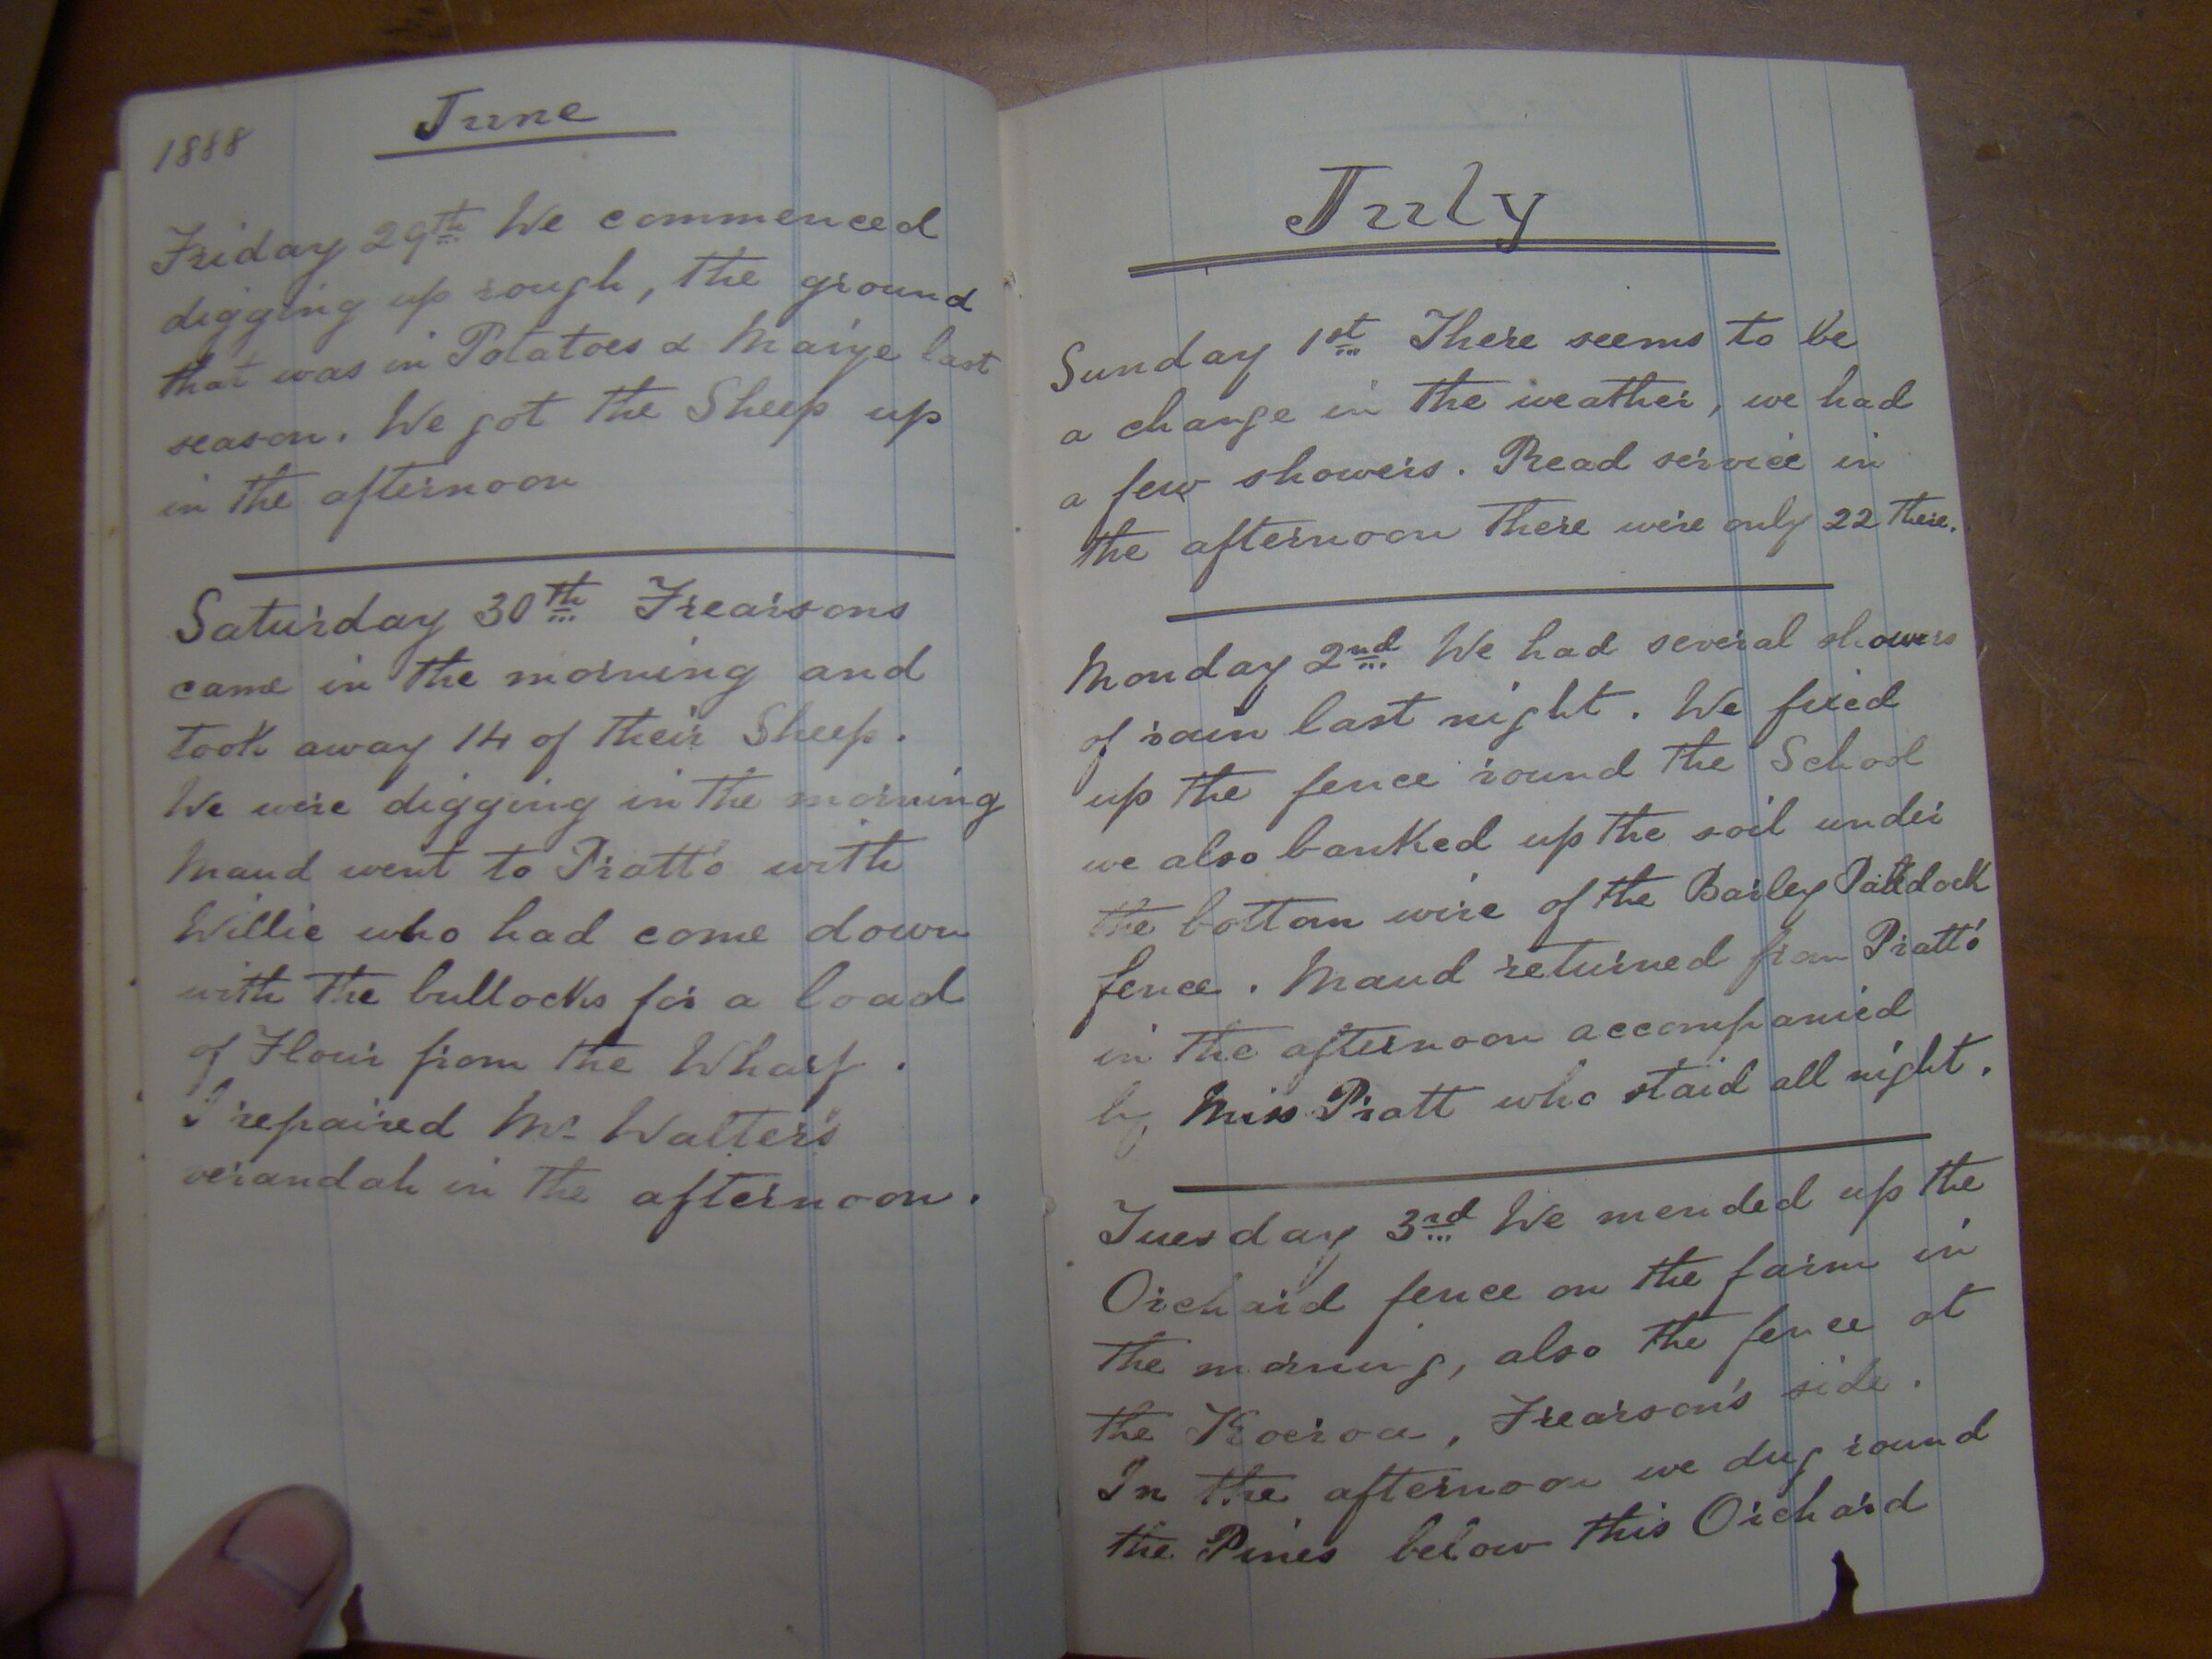 1888
June
Friday 29th We commenced
digging up rough, the ground
that was in Potatoes & Maize last
season. We got the Sheep up
in the afternoon
Saturday 30th Frearsons
came in the morning and
took away 14 of their Sheep.
We were digging in the morning
Maud went to Pratt's with
Willie who had come down
with the bullocks for a load
of Flour from the Wharf.
I repaired Mr Walter's
verandah in the afternoon.
July
Sunday 1st There seems to be
a change in the weather, we had
a few showers. Read service in
the afternoon There were only 22 there.
Monday 2nd We had several showers
of rain last night. We fixed
up the fence round the School
we also banked up the soil under
the bottom wire of the Barley Paddock
fence. Maud returned from Pratt's
in the afternoon accompanied
by Miss Pratt who staid all night.
Tuesday 3rd We mended up the
Orchard fence on the farm in
the morning, also the fence at
the Koeroa, Frearson's side.
In the afternoon we dug round
the Pines below this Orchard